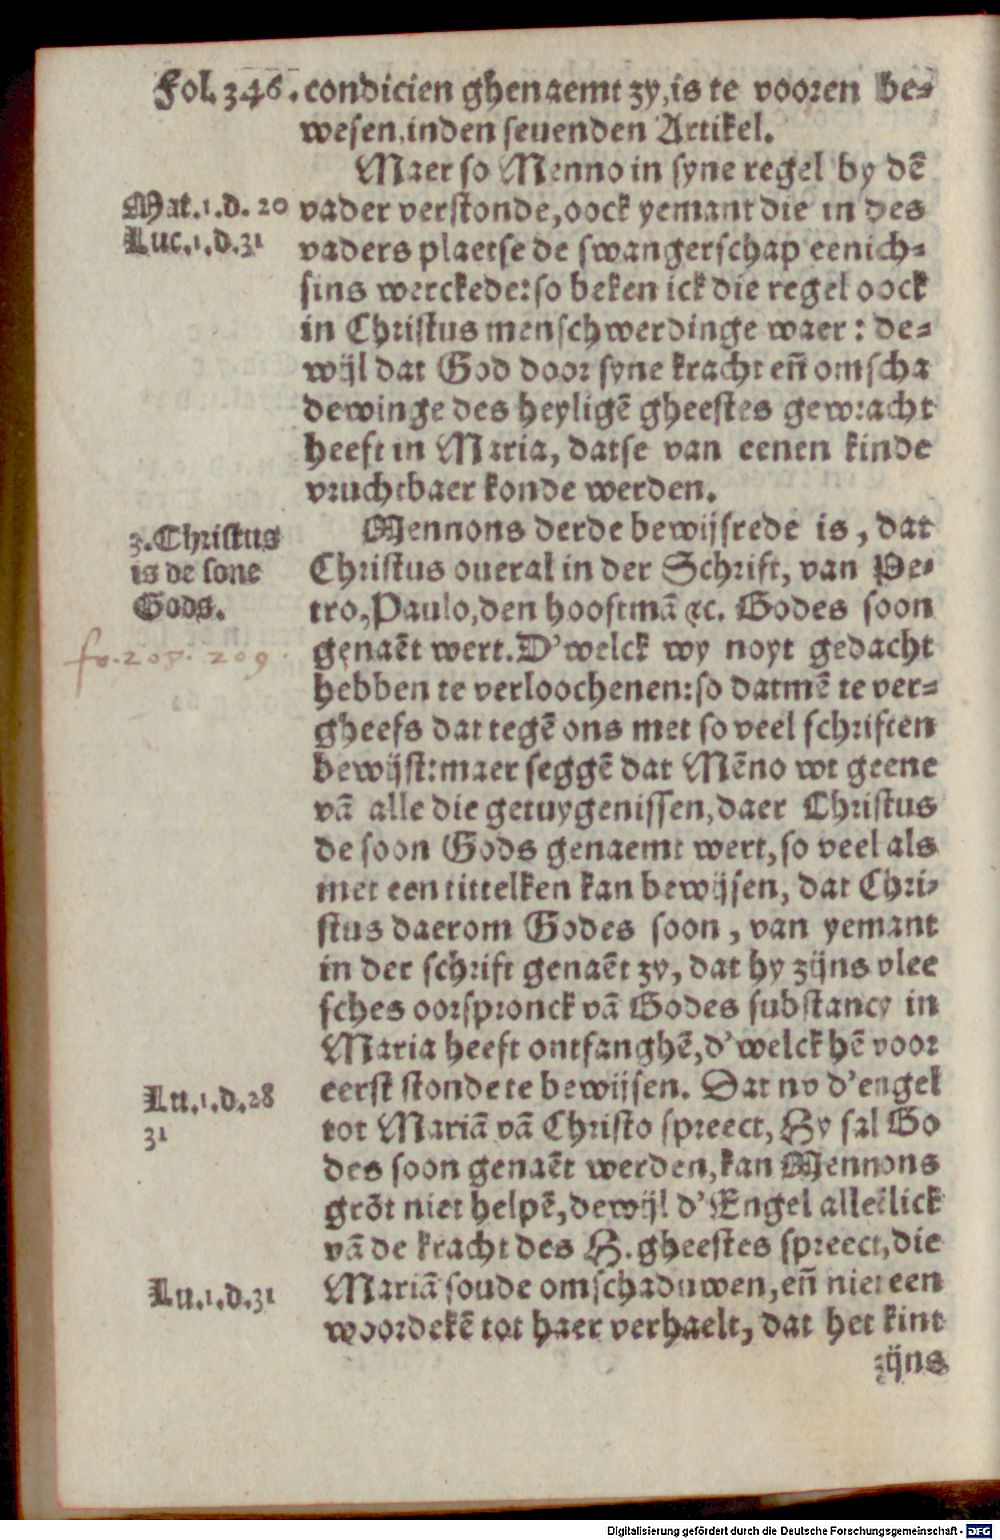 Fol. 346. condicien ghenaemt zy, is te vooren be⸗
wesen, inden seuenden Artikel.
Maer so Menno in syne regel by dē
Mat.1.d.20 vader verstonde, oock yemant die in des
Luc.1.d.31 vaders plaetse de swangerschap eenich⸗
sins werckede: so beken ick die regel oock
in Christus menschwerdinge waer: de⸗
wijl dat God door syne kracht eñ omscha
dewinge des heyligē gheestes gewracht
heeft in Maria, datse van eenen kinde
vruchtbaer konde werden.
Mennons derde bewijsrede is, dat
3. Christus
is de sone
Gods.
Christus oueral in der Schrift, van Pe⸗
tro, Paulo, den hooftmā ꝛc. Godes soon
fo. 208. 209.
genaēt wert. D'welck wy noyt gedacht
hebben te verloochenen: so datmē te ver⸗
gheefs dat tegē ons met so veel schriften
bewijst: maer seggē dat Mēno wt geene
vā alle die getuygenissen, daer Christus
de soon Gods genaemt wert, so veel als
met een tittelken kan bewijsen, dat Chri⸗
stus daerom Godes soon, van yemant
in der schrift genaēt zy, dat hy zijns vlee
sches oorspronck vā Godes substancy in
Maria heeft ontfanghē, d'welck hē voor
Lu.1.d.28 eerst stonde te bewijsen. Dat nv d'engel
31 tot Mariā vā Christo spreect, Hy sal Go
des soon genaēt werden, kan Mennons
grōt niet helpē, dewijl d'Engel alleēlick
vā de kracht des H. gheestes spreect, die
Lu.1.d.31 Mariā soude omschaduwen, eñ niet een
woordekē tot haer verhaelt, dat het kint
zijns
Digitalisierung gefördert durch die Deutsche Forschungsgemeinschaft - DFG